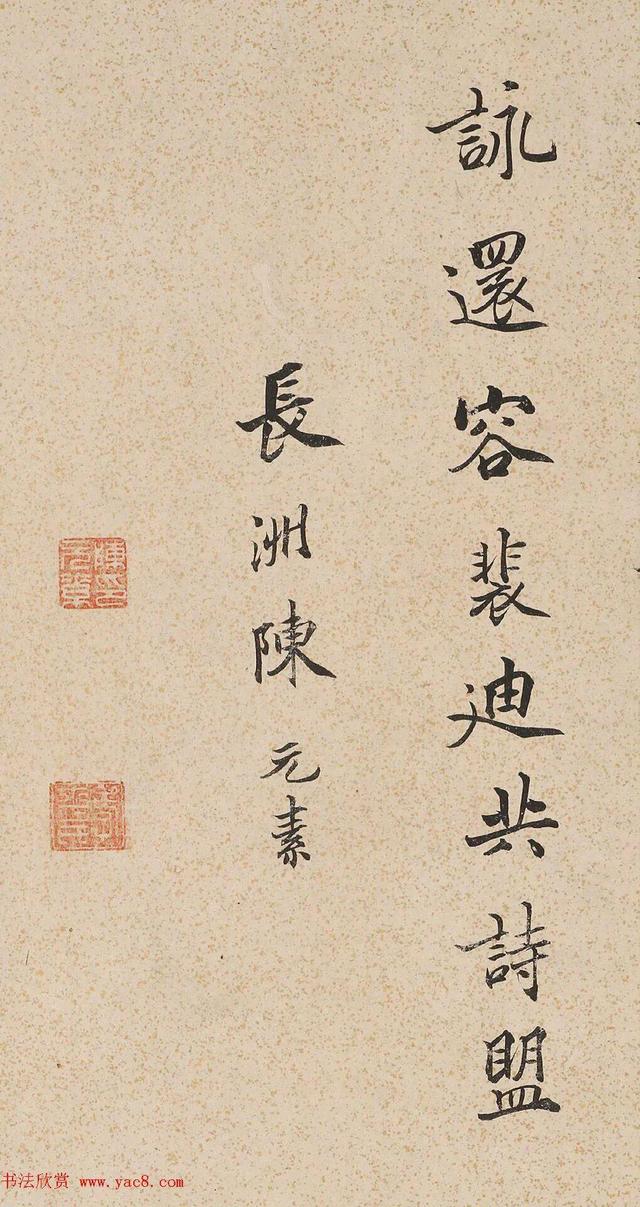 詠還容裴迪共詩盟
長洲陳元素
書法欣赏 www.yac8.com